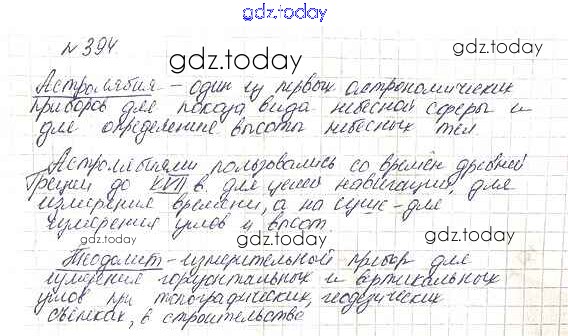 gdz.today
№ 394
gdz.today
gdz.today
Астролябия – один из первых астрономических
приборов для показа вида небесной сферы и
для определение высоты небесных тел.
Астролябиями пользовались со времён древней
Греции до XVII в. для целей навигации, для
измерения времени, а на суше – для
измерения углов и высот.
gdz.today
gdz.today
Теодолит – измерительный прибор для
измерения горизонтальных и вертикальных
углов при топографических, геодезических
съёмках, в строительстве